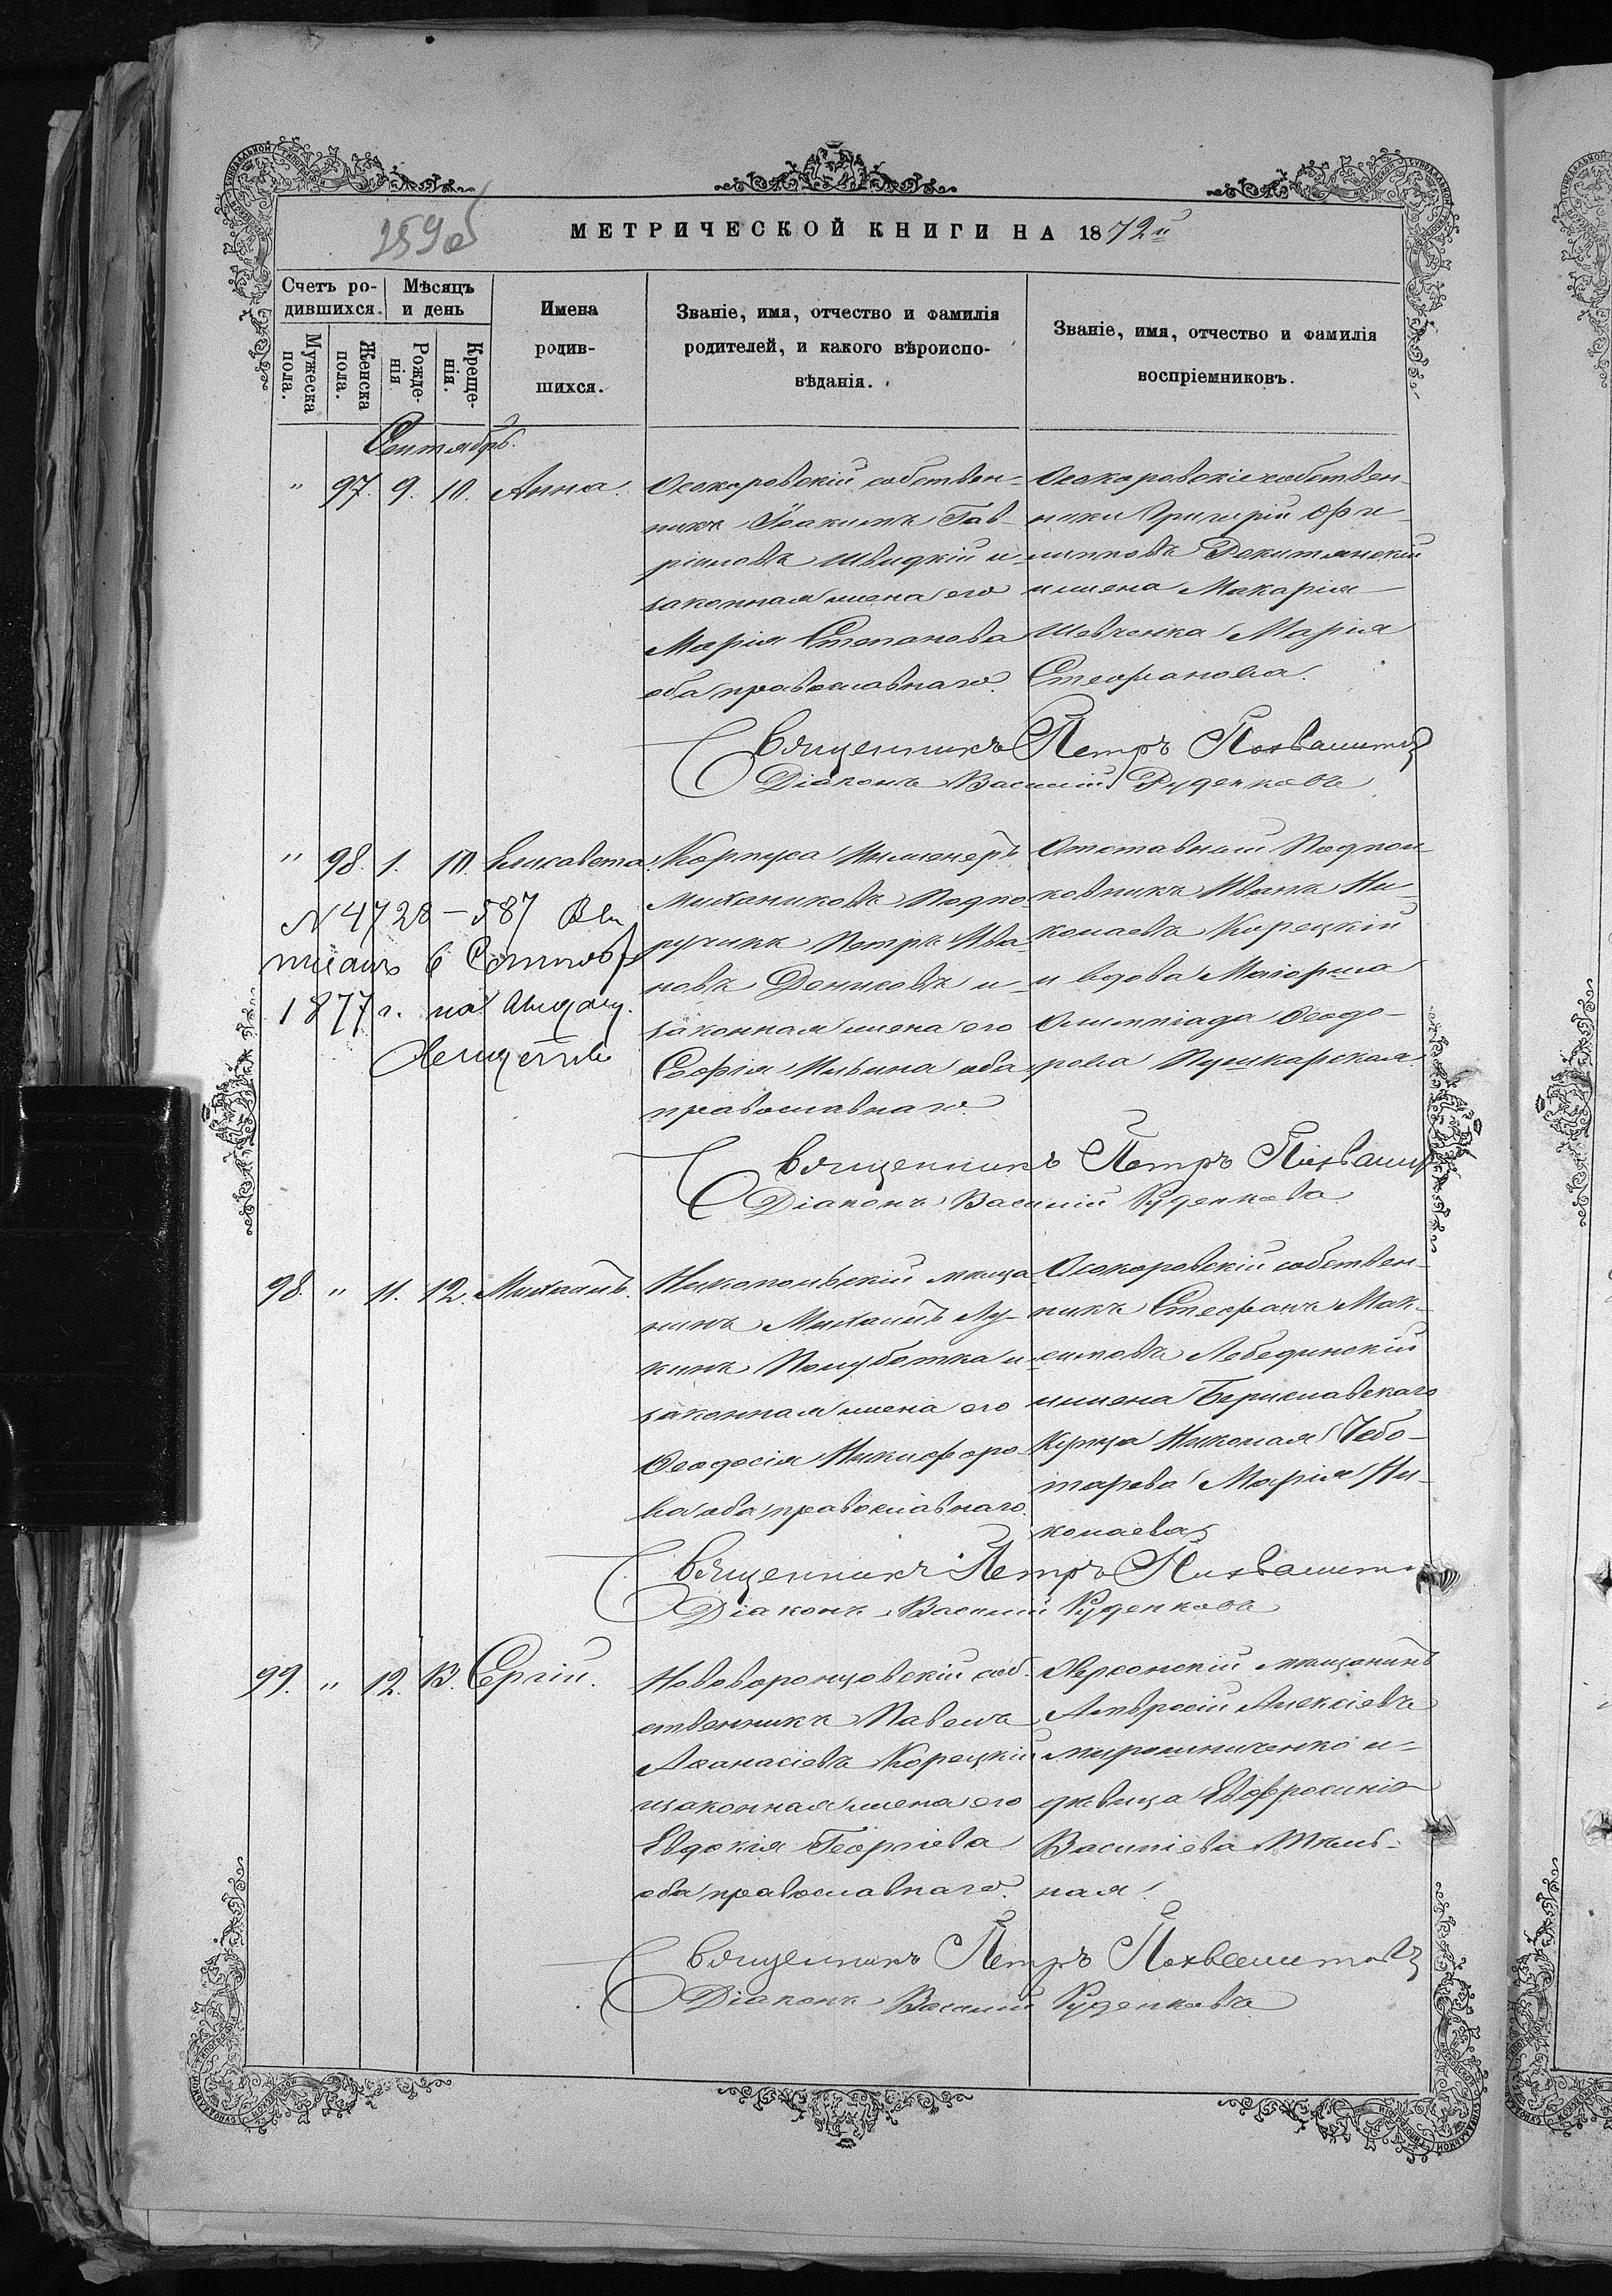 259об
МЕТРИЧЕСКОЙ КНИГИ НА 1872й
Счетъ ро-
дившихся.
Мужеска пола.
Женска пола.
Мѣсяцъ
и день
Рожде-
нія
Креще-
нія.
Имена
родив-
шихся.
Званіе, имя, отчество и фамилія
родителей, и какого вѣроиспо-
вѣданія.
Званіе, имя, отчество и фамилія
воспріемниковъ.
Сентябрь.
" 97. 9. 10. Анна.
Осокоровскій собствен-
никъ Іоакимъ Гав-
ріиловъ Швидкій и
законная жена его
Марія Степанова
оба православнаго.
Осокоровскіе собствен-
ники Григорій Фи-
липповъ Рокитянскій
и жена Макарія
Шевченка Марія
Стефанова.
Священникъ Петръ
Діаконъ Василій Руденковъ
" 98. 1. 10. Елисавета.
N 4728 – 587
1877 г.
Корпуса Инженеръ
Механиковъ Подпо-
ручикъ Петръ Ива-
новъ Дениковъ и
законная жена его
Софія Ильина оба
православнаго.
Отставный Подпол-
ковникъ Иванъ Ни-
колаевъ Корецкій
и вдова Маіорша
Олимпіада Ѳеодо-
рова Пушкарская.
Священникъ Петръ
Діаконъ Василій Руденковъ
98. " 11. 12. Михаилъ.
Никопольскій мѣща-
нинъ Михаилъ Лу-
кинъ Полуботка и
законная жена его
Ѳеодосія Никифоро-
ва оба православнаго.
Осокоровскій собствен-
никъ Стефанъ Мак-
симовъ Лебединскій
и жена Бериславскаго
Купца Николая Чебо-
тарева Марія Ни-
колаева
Священникъ Петръ
Діаконъ Василій Руденковъ
99. " 12. 13. Сергій.
Нововоронцовскій соб-
ственникъ Павелъ
Аѳанасіевъ Корецкій
и законная жена его
Евдокія Георгіева
оба православнаго.
Херсонскій мѣщанинъ
Амвросій Алексіевъ
Мирошниченко и
дѣвица Евфросинія
Василіева
ная.
Священникъ Петръ
Діаконъ Василій Руденковъ